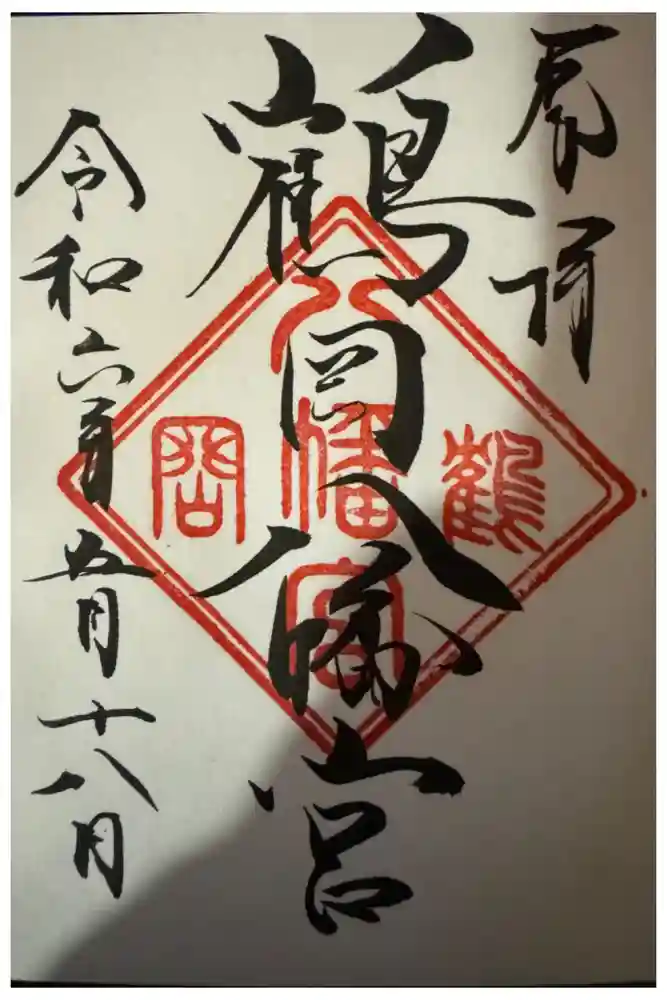 奉拝
鶴岡八幡宮
令和六年五月十八日
鶴岡八幡宮